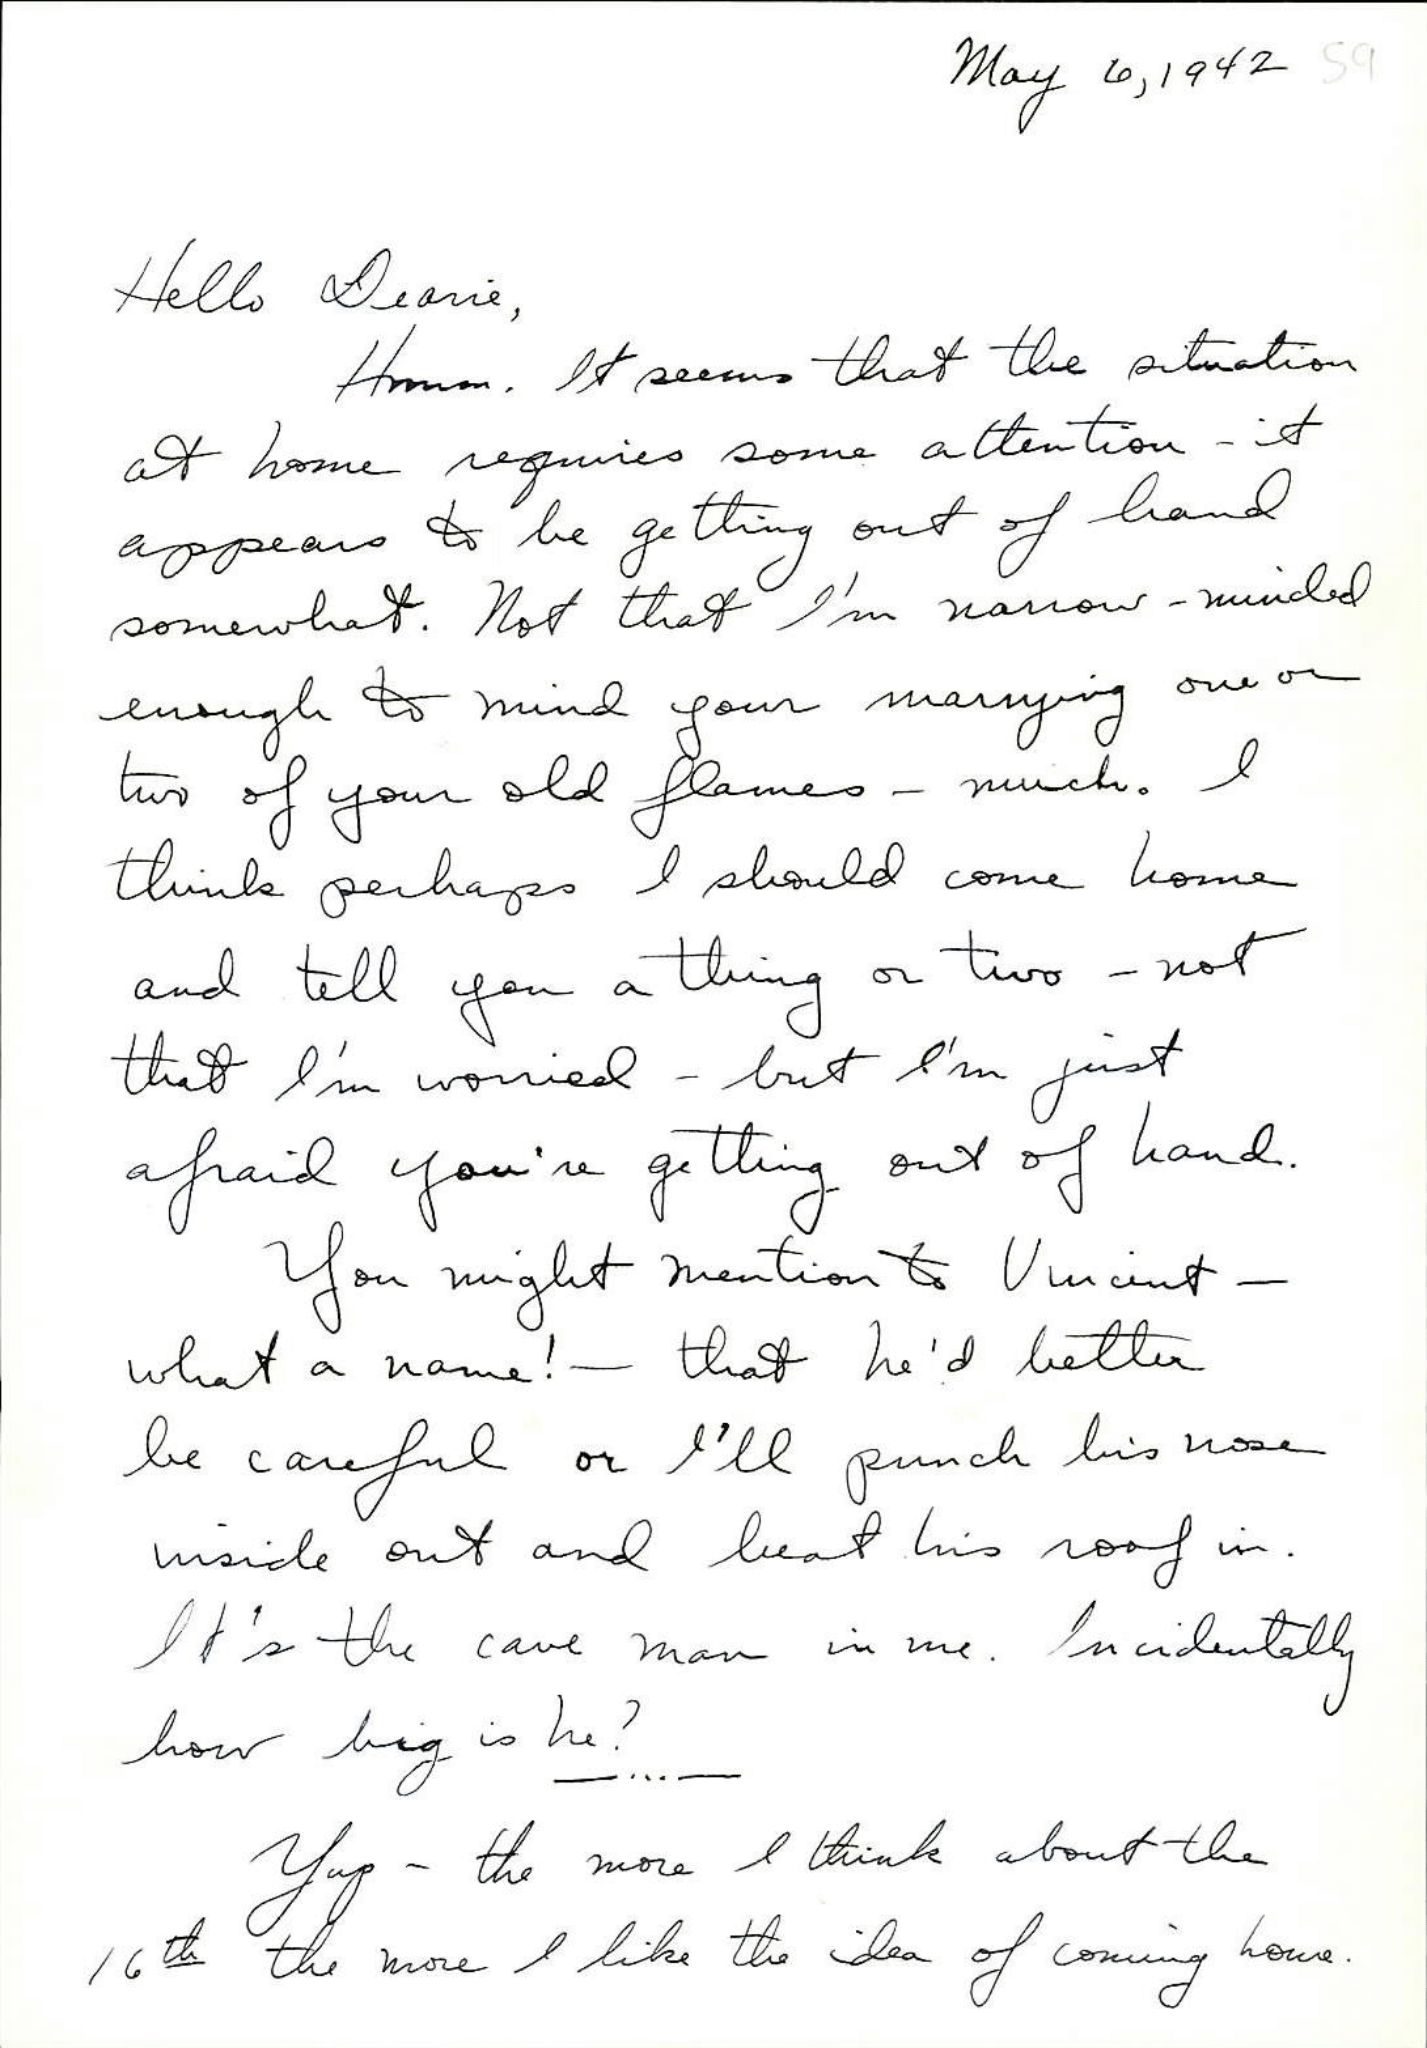 May 6, 1942 59
Hello Dearie,
Hmmm. It seems that the situation
at home requires some attention - it
appears to be getting out of hand
somewhat. Not that I'm narrow-minded
enough to mind your marrying one or
two of your old flames - much. I
think perhaps I should come home
and tell you a thing or two - not
that I'm worried - but I'm just
afraid you're getting out of hand.
You might mention to Vincent —
what a name! — that he'd better
be careful or I'll punch his nose
inside out and beat his roof in.
It's the cave man in me. Incidentally
how big is he?
—...—
Yup - the more I think about the
16th the more I like the idea of coming home.